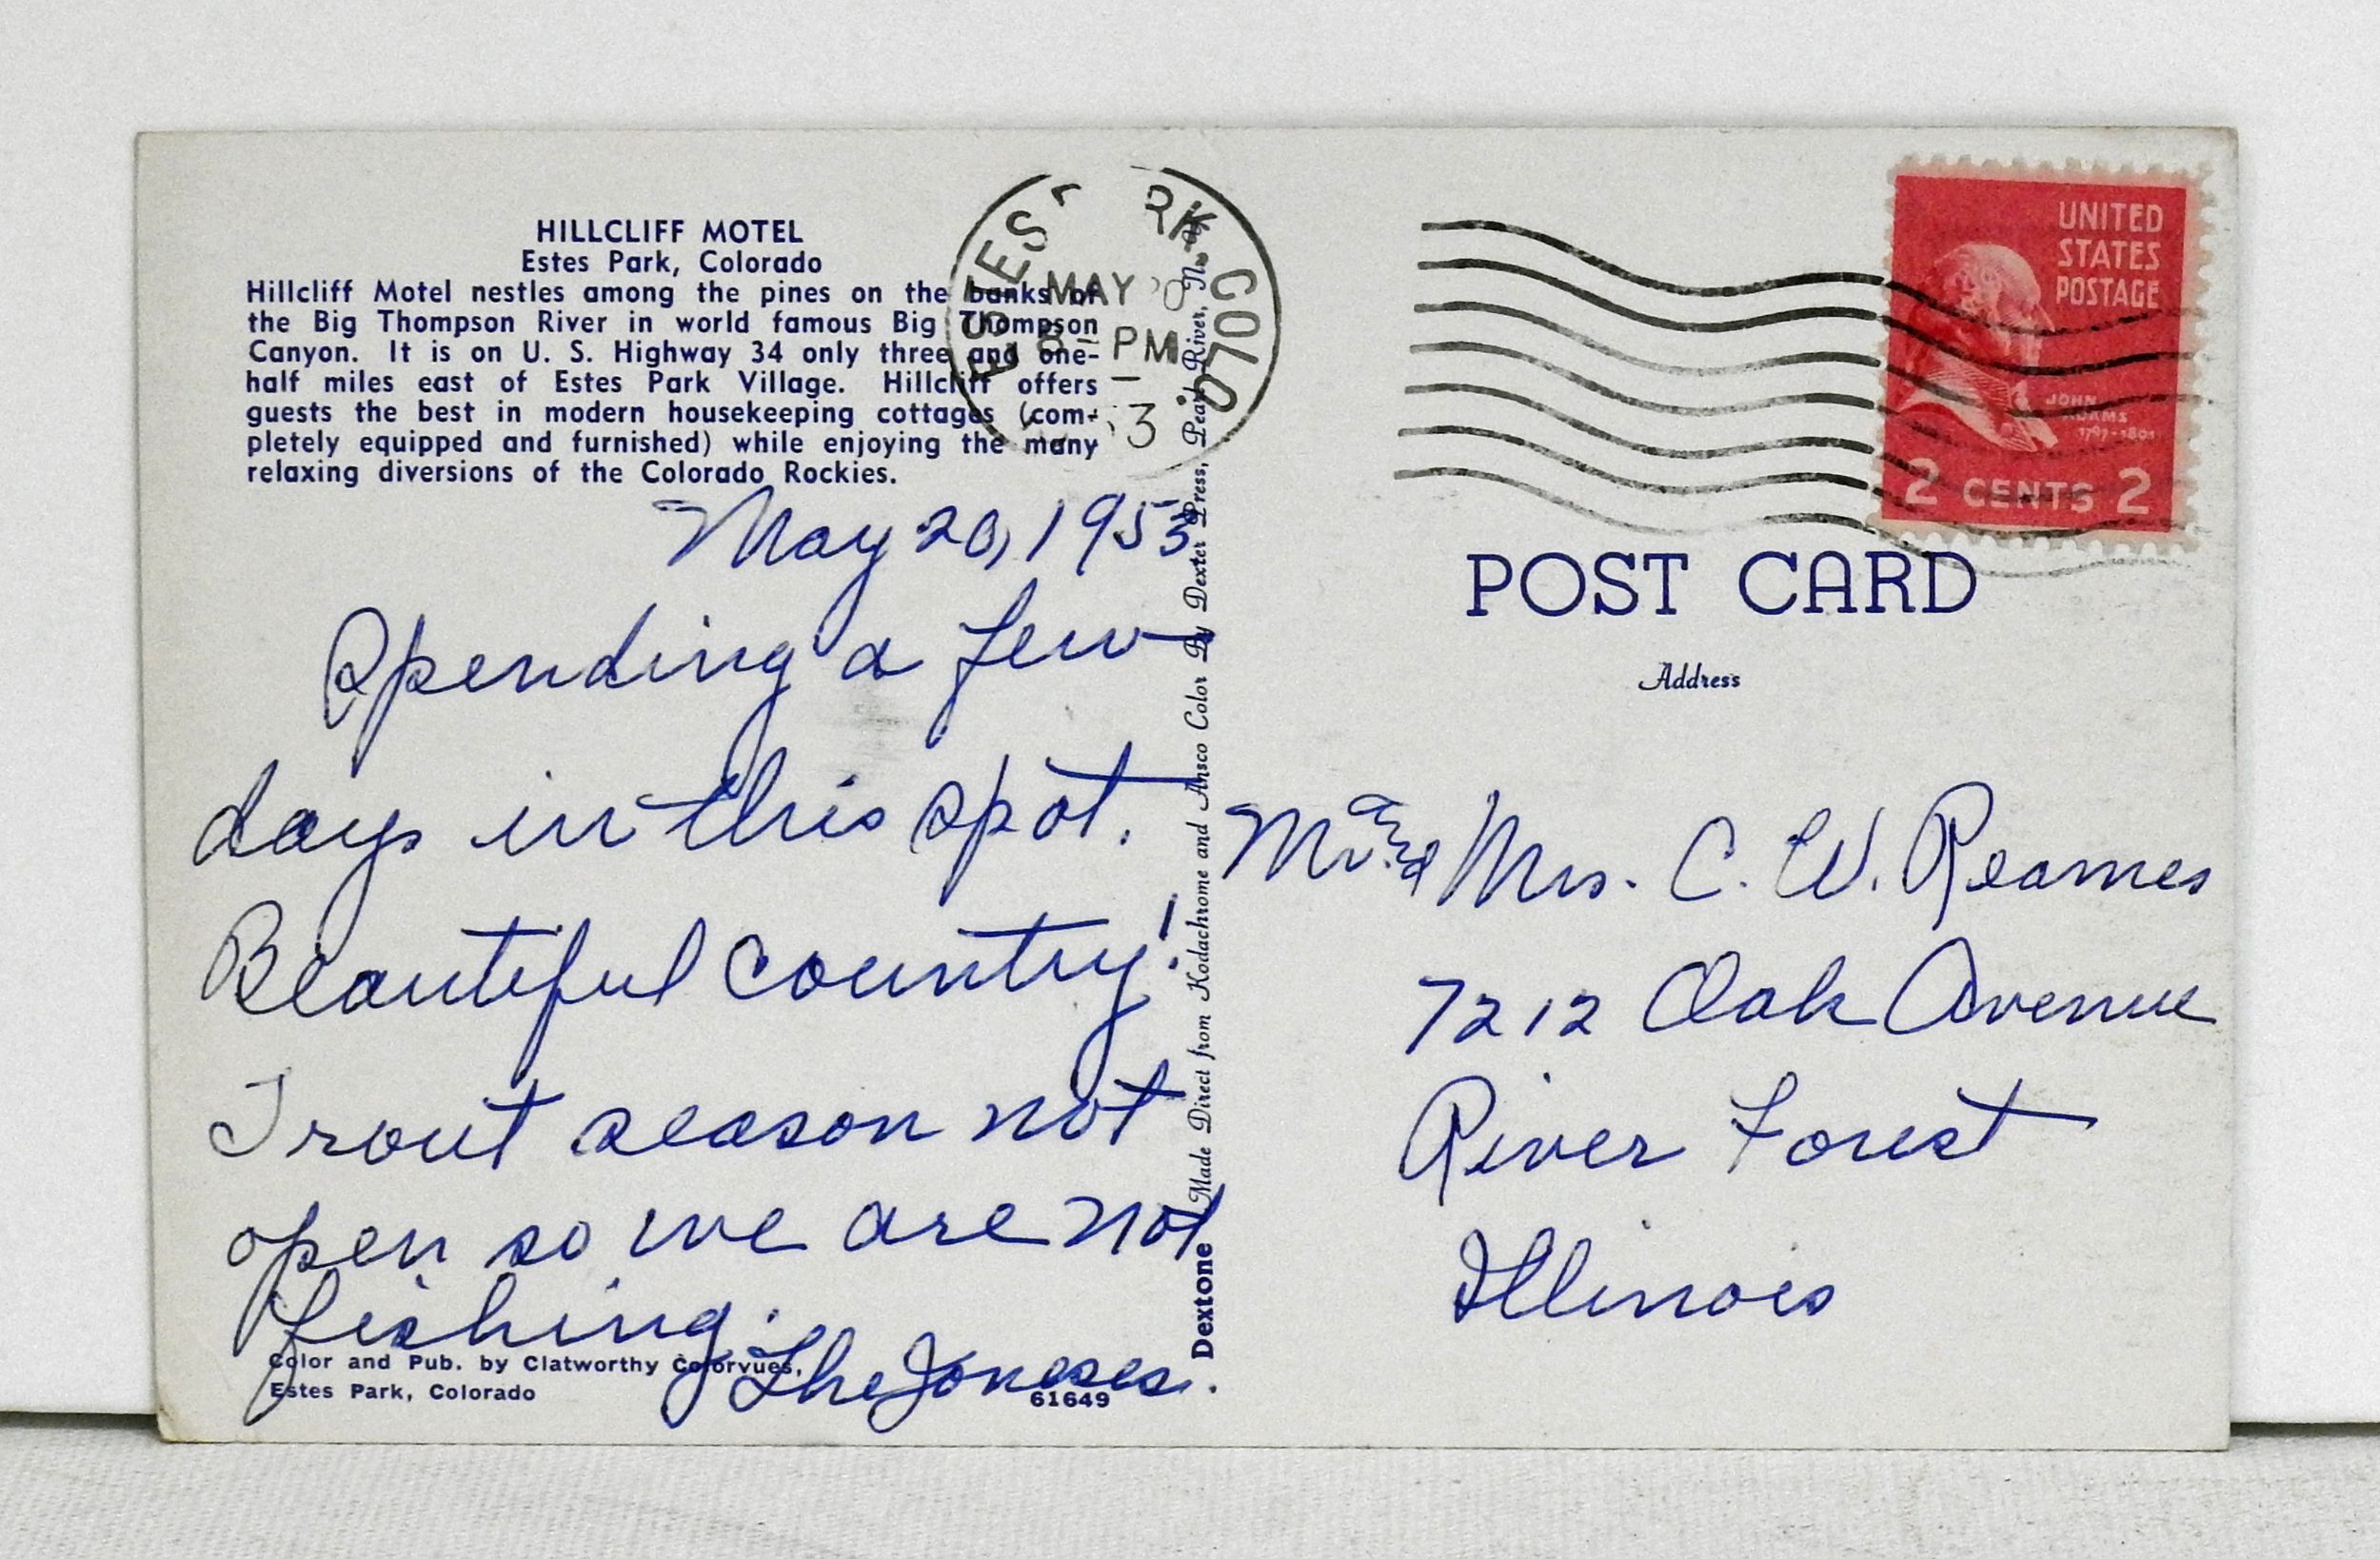 HILLCLIFF MOTEL
Estes Park, Colorado
Hillcliff Motel nestles among the pines on the banks of
the Big Thompson River in world famous Big Thompson
Canyon. It is on U. S. Highway 34 only three and one-
half miles east of Estes Park Village. Hillcliff offers
guests the best in modern housekeeping cottages (com-
pletely equipped and furnished) while enjoying the many
relaxing diversions of the Colorado Rockies.
May 20, 1953
Spending a few
days in this spot.
Beautiful country!
Trout season not
open so we are not
fishing.
The Joneses.
Color and Pub. by Clatworthy Colorvues,
Estes Park, Colorado
61649
Dextone Made Direct from Kodachrome and Ansco Color By Dexter Press, Pearl River, N.
ESTES RK COLO
MAY
8- PM
3
UNITED
STATES
POSTAGE
JOHN
ADAMS
1797-1801
2 CENTS 2
POST CARD
Address
Mr. and Mrs. C. W. Reames
7212 Oak Avenue
River Forest
Illinois